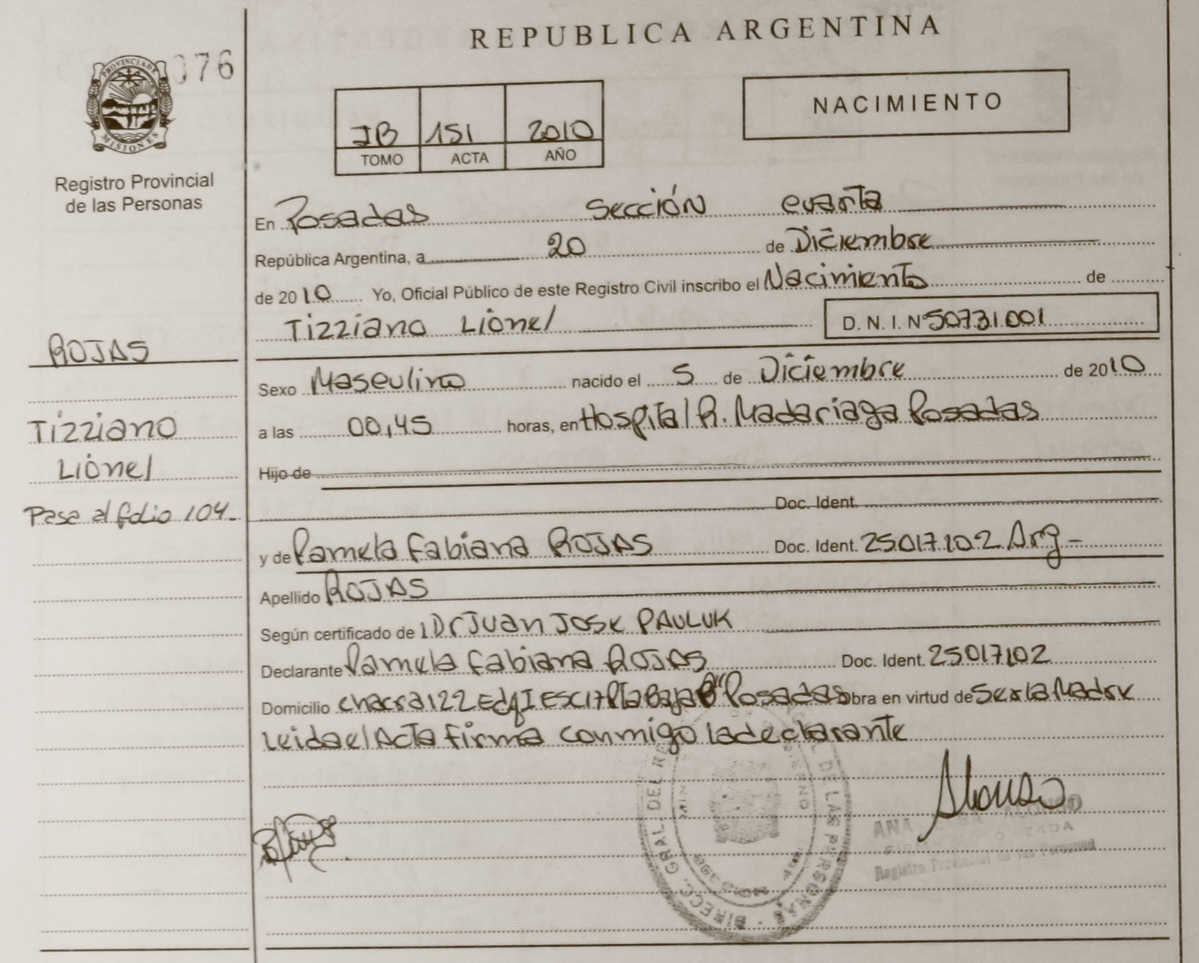 REPUBLICA ARGENTINA
076
PROVINCIA DE MISIONES
Registro Provincial
de las Personas
JB 151 2010
TOMO ACTA AÑO
NACIMIENTO
En Posadas Sección cuarta
República Argentina, a 20 de Diciembre
de 2010 Yo, Oficial Público de este Registro Civil inscribo el Nacimiento de
Tizziano Lionel D. N. I. N 50731.001
ROJAS
Tizziano
Lionel
Pase al folio 104-
Sexo Masculino nacido el 5 de Diciembre de 2010
a las 00,45 horas, en Hospital R. Madariaga Posadas
Hijo de
Doc. Ident.
y de Pamela Fabiana ROJAS Doc. Ident. 25.017.102 Arg-
Apellido ROJAS
Según certificado de Dr Juan José PAULUK
Declarante Pamela Fabiana ROJAS Doc. Ident. 25017102
Domicilio chacra 122 Posadas obra en virtud de Ser la Madre
Leida el Acta firma conmigo la declarante
Alonso
ANA ALONSO
Registro Provincial de las Personas
DIRECC. GRAL. DEL DE LAS PERSONAS